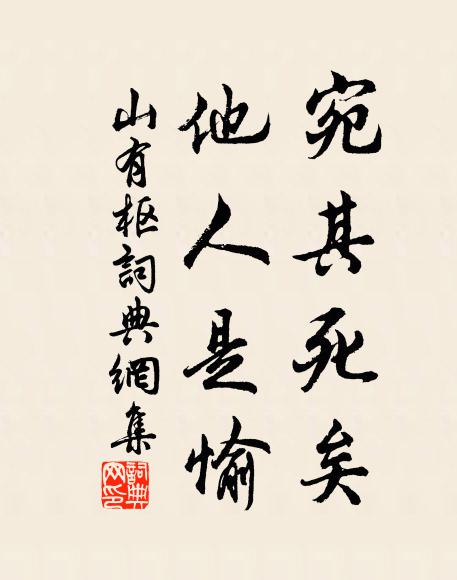 宛其死矣
他人是愉
山有枢詞典網集
詞典網印